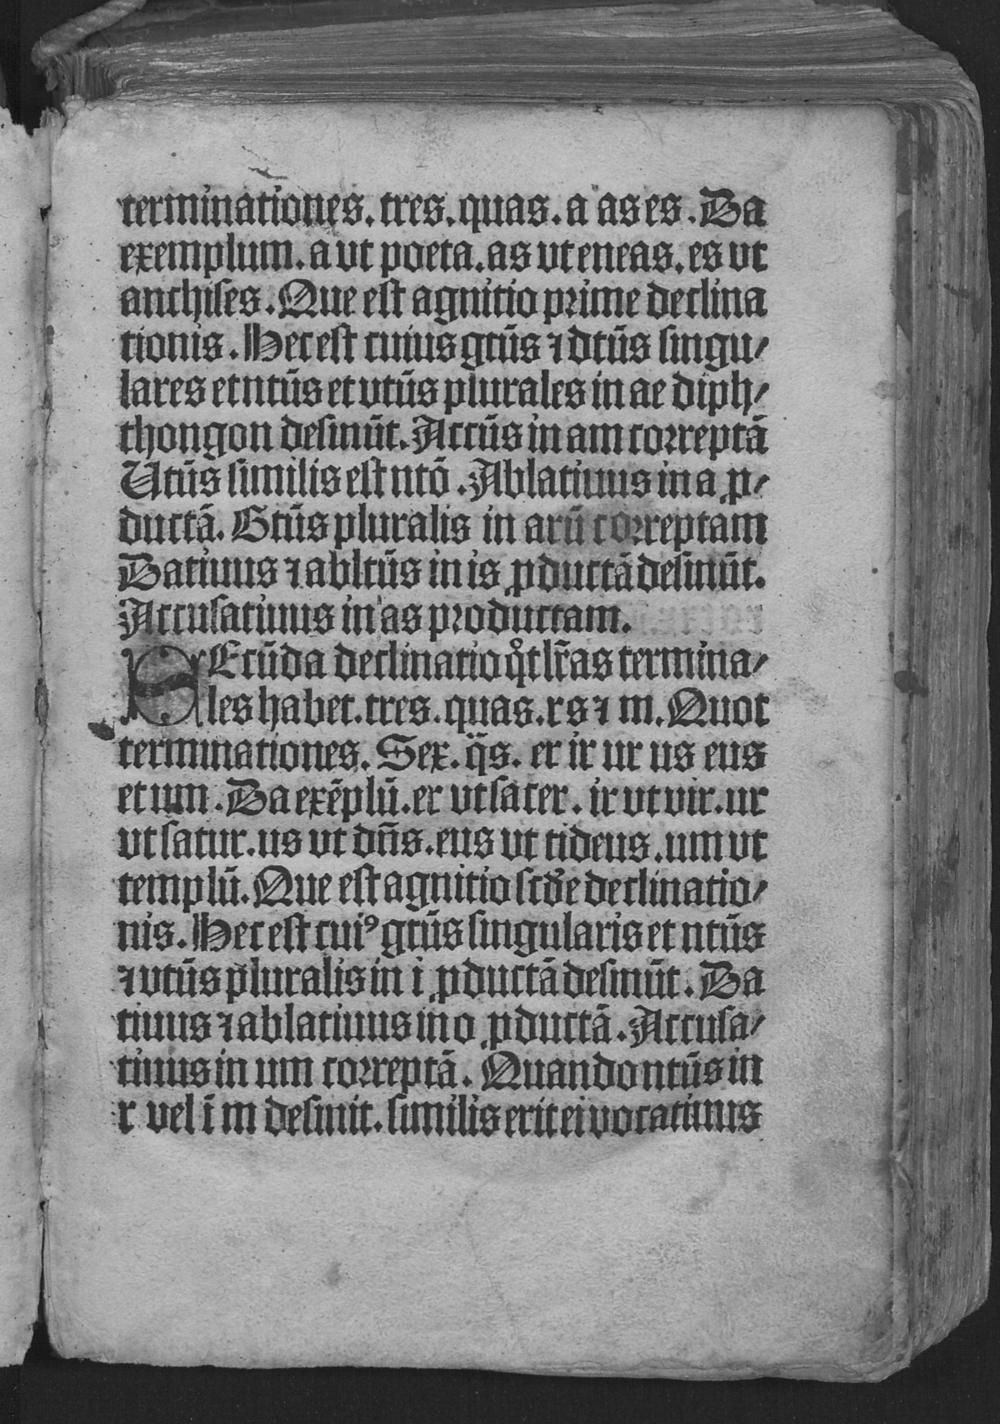 terminationes. tres. quas. a as es. Da
exemplum. a vt poeta. as vt eneas. es vt
anchises. Que est agnitio prime declina
tionis. Hec est cuius gtūs ⁊ dtūs singu/
lares et ntūs et vtūs plurales in ae diph/
thongon desinūt. Accūs in am correptā
Utūs similis est ntō. Ablatiuus in a ꝓ/
ductā. Gtūs pluralis in arū correptam
Datiuus ⁊ abltūs in is ꝓductā desinūt.
Accusatiuus in as productam.
SEcūda declinatio qͦt lr̄as termina/
les habet. tres. quas. r s ⁊ m. Quot
terminationes. Sex. q̈s. er ir ur us eus
et um. Da exēplū. er vt sacer. ir vt vir. ur
vt satur. us vt dn̄s. eus vt tideus. um vt
templū. Que est agnitio scd̄e declinatio/
nis. Hec est cuiꝰ gtūs singularis et ntūs
⁊ vtūs pluralis in i ꝓductā desinūt. Da
tiuus ⁊ ablatiuus in o ꝓductā. Accusa/
tiuus in um correptā. Quando ntūs in
r vel ī m desinit. similis erit ei vocatiuus